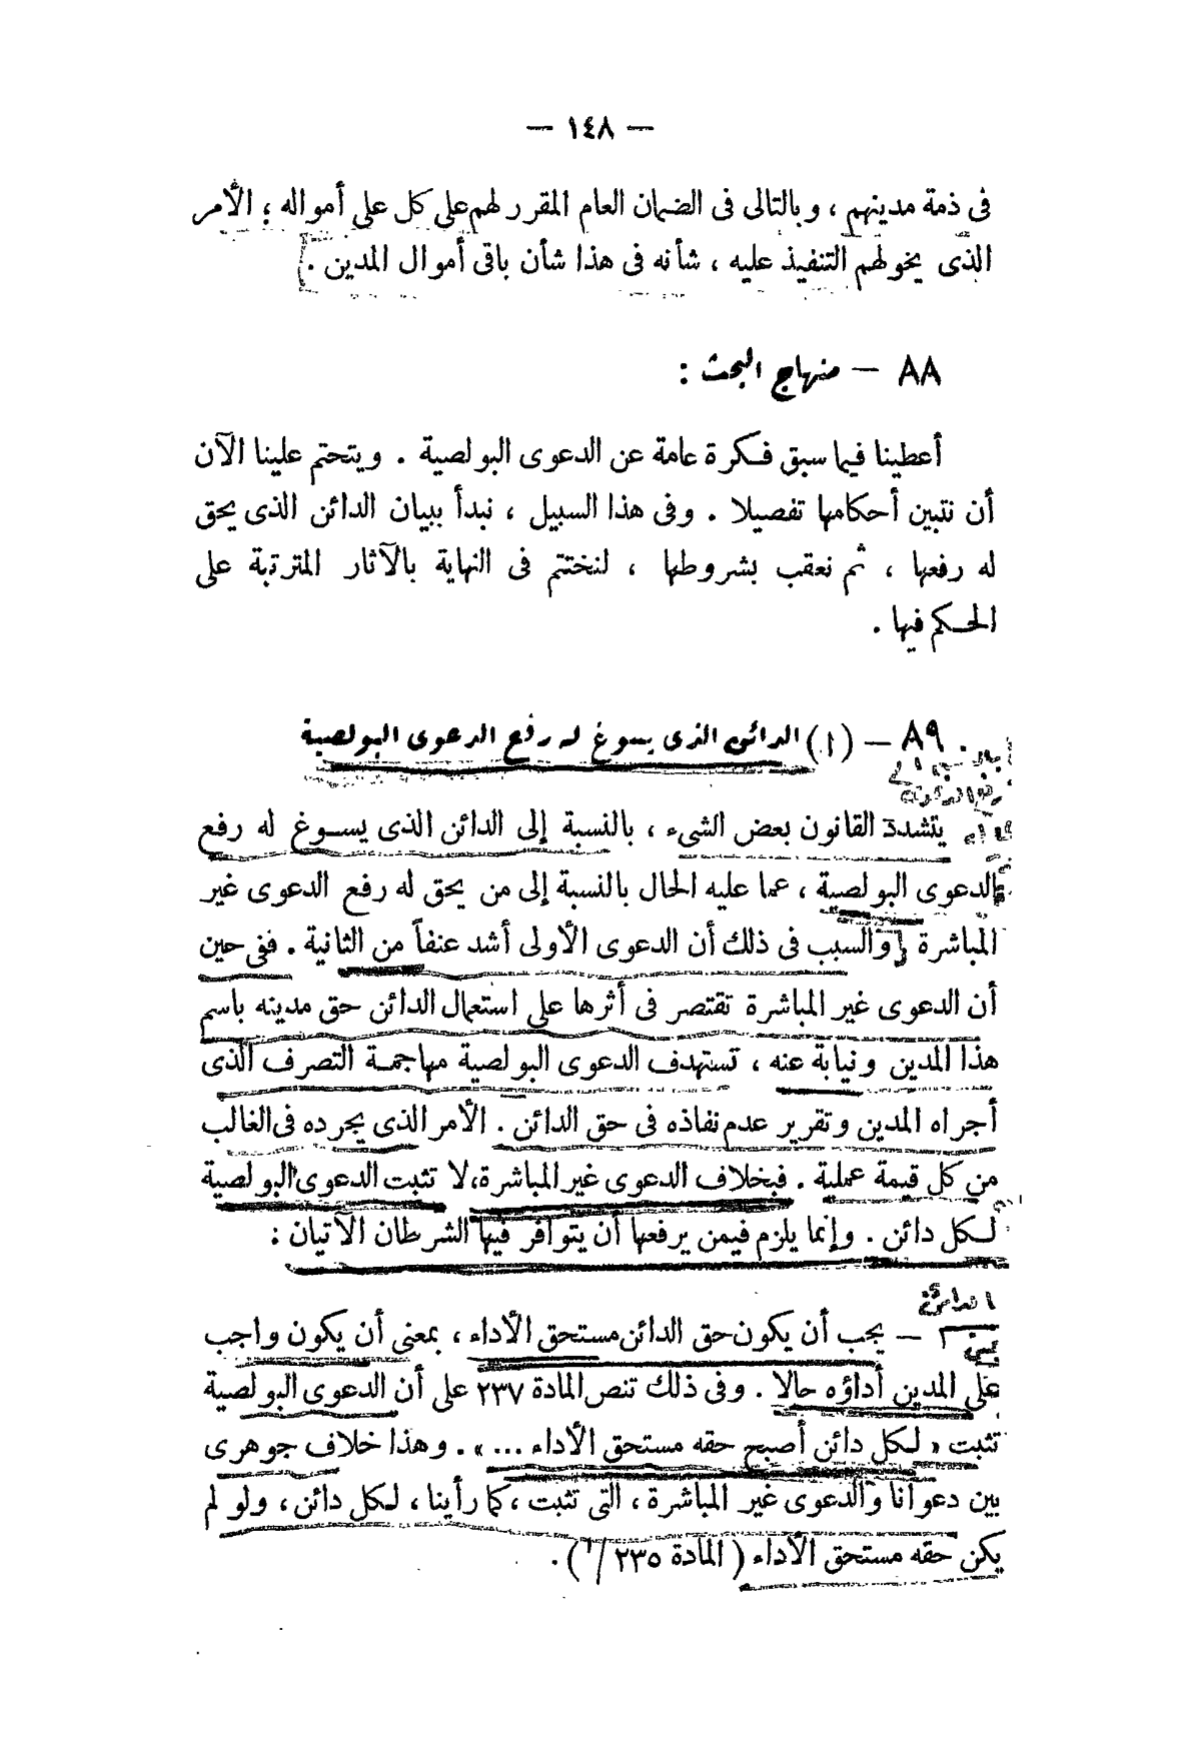 — ١٤٨ —
فى ذمة مدينهم ، وبالتالى فى الضمان العام المقرر لهم على كل على أمواله ؛ الأمر
الذى يخولهم التنفيذ عليه ، شأنه فى هذا شأن باقى أموال المدين .
٨٨ — منهاج البحث :
أعطينا فيما سبق فكرة عامة عن الدعوى البولصية . ويتحتم علينا الآن
أن نتبين أحكامها تفصيلا . وفى هذا السبيل ، نبدأ ببيان الدائن الذى يحق
له رفعها ، ثم نعقب بشروطها ، لنختتم فى النهاية بالآثار المترتبة على
الحكم فيها .
٨٩ — (١) الدائن الذى يسوغ له رفع الدعوى البولصية
يتشدد القانون بعض الشىء ، بالنسبة إلى الدائن الذى يسوغ له رفع
الدعوى البولصية ، عما عليه الحال بالنسبة إلى من يحق له رفع الدعوى غير
المباشرة . والسبب فى ذلك أن الدعوى الأولى أشد عنفاً من الثانية . ففى حين
أن الدعوى غير المباشرة تقتصر فى أثرها على استعمال الدائن حق مدينه باسم
هذا المدين ونيابة عنه ، تستهدف الدعوى البولصية مهاجمة التصرف الذى
أجراه المدين وتقرير عدم نفاذه فى حق الدائن . الأمر الذى يجرده فى الغالب
من كل قيمة عملية . فبخلاف الدعوى غير المباشرة، لا تثبت الدعوى البولصية
لكل دائن . وإنما يلزم فيمن يرفعها أن يتوافر فيها الشرطان الآتيان :
— يجب أن يكون حق الدائن مستحق الأداء ، بمعنى أن يكون واجب
على المدين أداؤه حالا . وفى ذلك تنص المادة ٢٣٧ على أن الدعوى البولصية
تثبت « لكل دائن أصبح حقه مستحق الأداء ... » . وهذا خلاف جوهرى
بين دعوانا والدعوى غير المباشرة ، التى تثبت ، كما رأينا ، لكل دائن ، ولو لم
يكن حقه مستحق الأداء ( المادة ٢٣٥/١ ) .